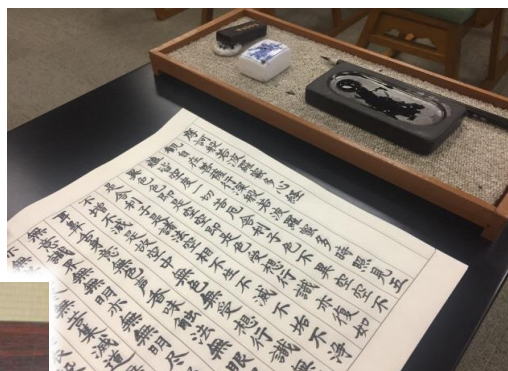 摩訶般若波羅蜜多心経
観自在菩薩行深般若波羅蜜多時照見五
蘊皆空度一切苦厄舎利子色不異空空不
異色色即是空空即是色受想行識亦復如
是舎利子是諸法空相不生不滅不垢不浄
不増不減是故空中無色無受想行識無眼
耳鼻舌身意無色声香味触法無眼
無意識界無無明亦無無明尽
苦集滅道